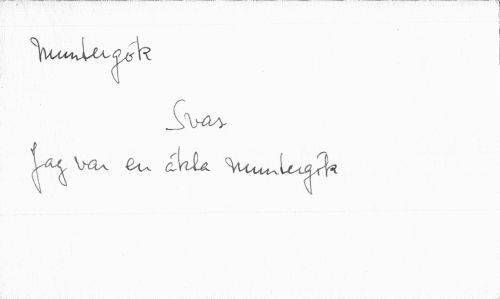 Muntergök
Svar
Jag var en äkta muntergök